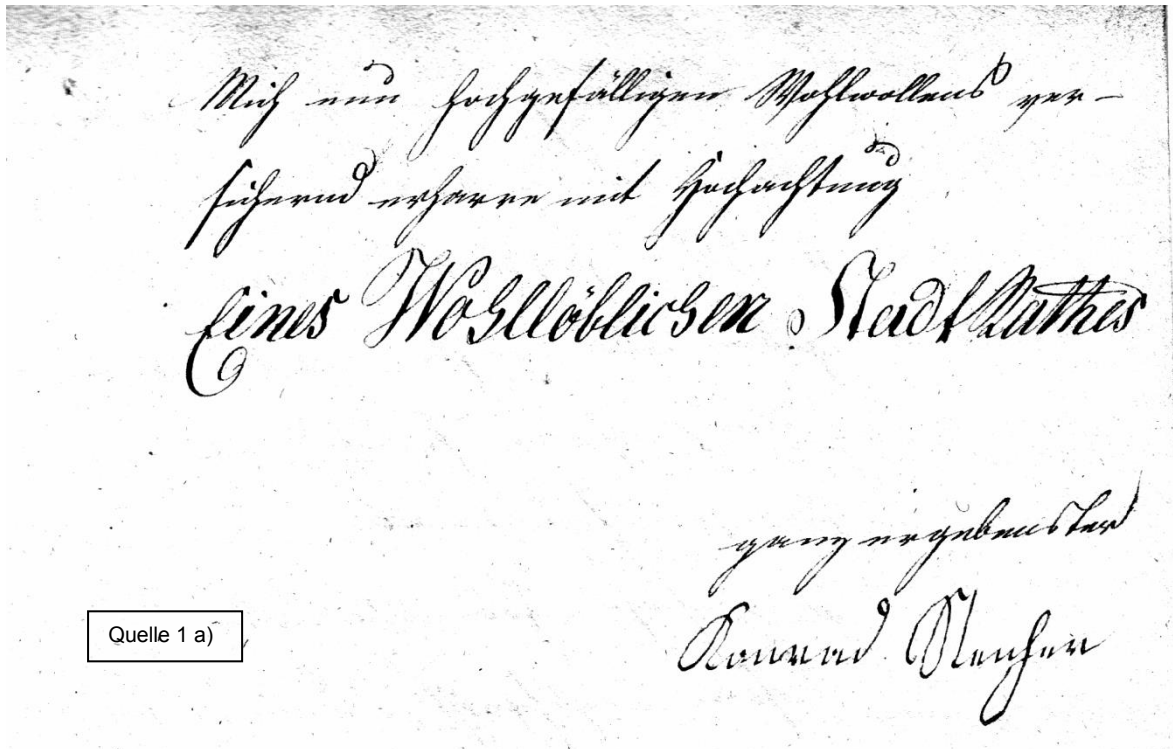 Mich nun hochgefälligen Wohlwollens ver-
sichernd erharre mit Hochachtung
Eines Wohllöblichen Stadt Rathes
ganz ergebenster
Konrad
Quelle 1 a)